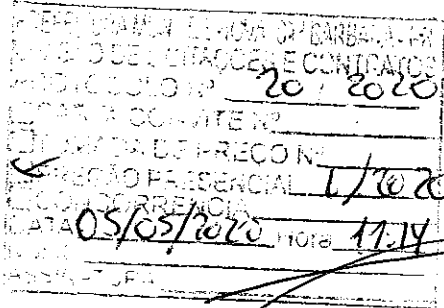 PREFEITURA MUN. DE NOVA STA BARBARA - PR
DIVISÃO DE LICITAÇÕES E CONTRATOS
PROTOCOLO Nº 20 / 2020
CARTA CONVITE Nº
TOMADA DE PREÇO Nº
PREGÃO PRESENCIAL 1/2020
CONCORRENCIA
DATA 05/05/2020 Hora 11:14
ASSINATURA